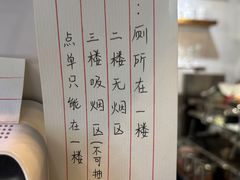 ：
厕所在一楼
二楼无烟区
三楼吸烟区(不可抽
点单只能在一楼